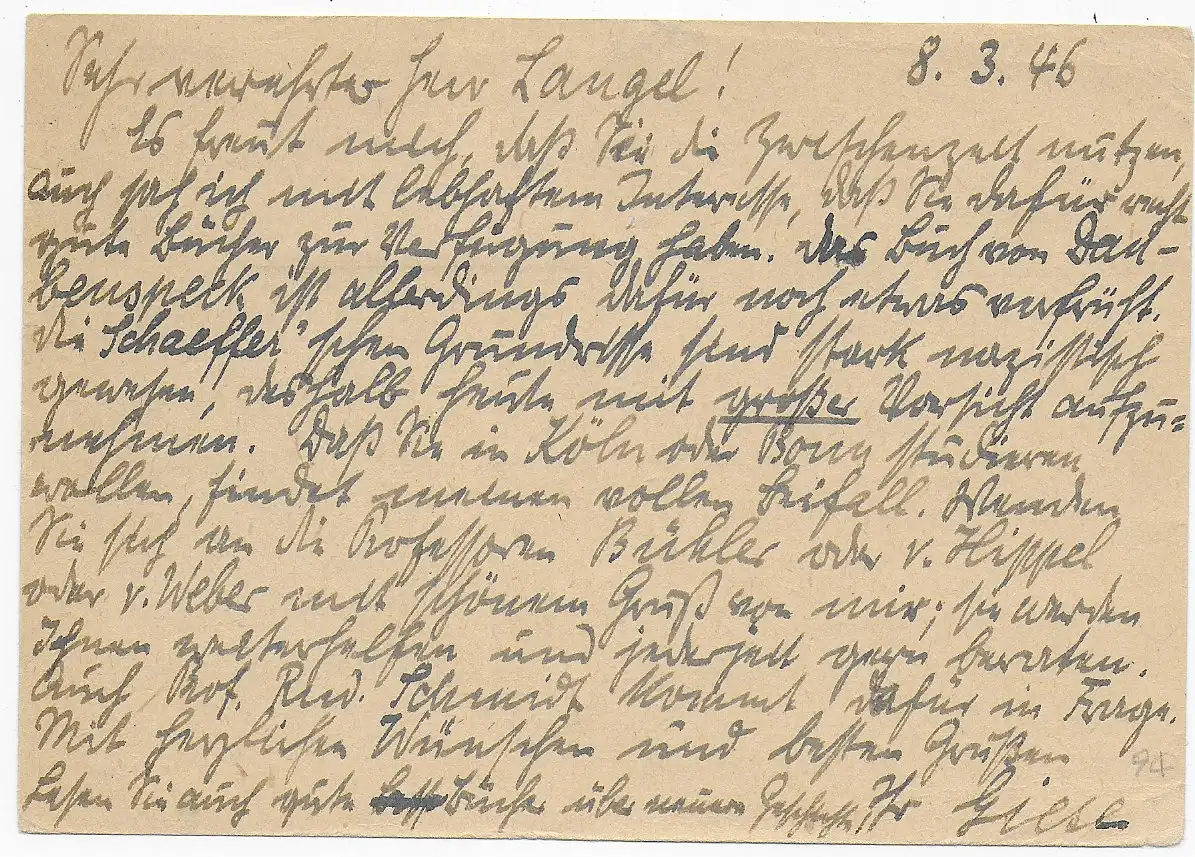 8. 3. 46
Sehr verehrter Herr Langel!
Es freut mich, daß Sie die Zwischenzeit nutzen,
auch sah ich mit lebhaftem Interesse, daß Sie dafür recht
gute Bücher zur Verfügung haben. Das Buch von Dau-
benspeck ist allerdings dafür noch etwas verfrüht.
Die Schaeffer'schen Grundrisse sind stark nazistisch
gewesen, deshalb heute mit großer Vorsicht aufzu=
nehmen. Daß Sie in Köln oder Bonn studieren
wollen, findet meinen vollen Beifall. Wenden
Sie sich an die Professoren Bühler oder v. Hippel
oder v. Weber mit schönem Gruß von mir; sie werden
Ihnen weiterhelfen und jederzeit gern beraten.
Auch Prof. Rud. Schmidt kommt dafür in Frage.
Mit herzlichen Wünschen und besten Grüßen
Lesen Sie auch gute Bücher über neuere Geschichte, Ihr Giese
94